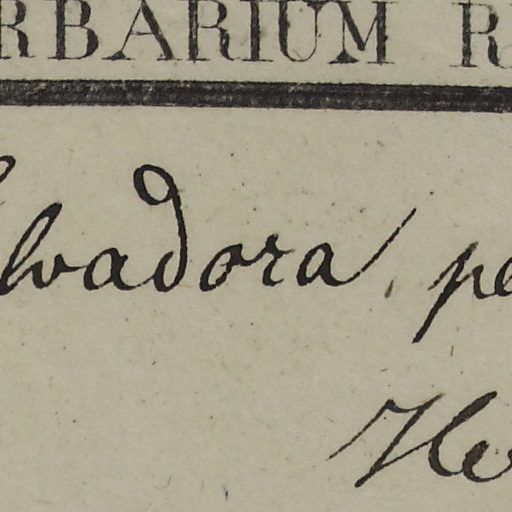 RBARIUM R
lvadora pe
He